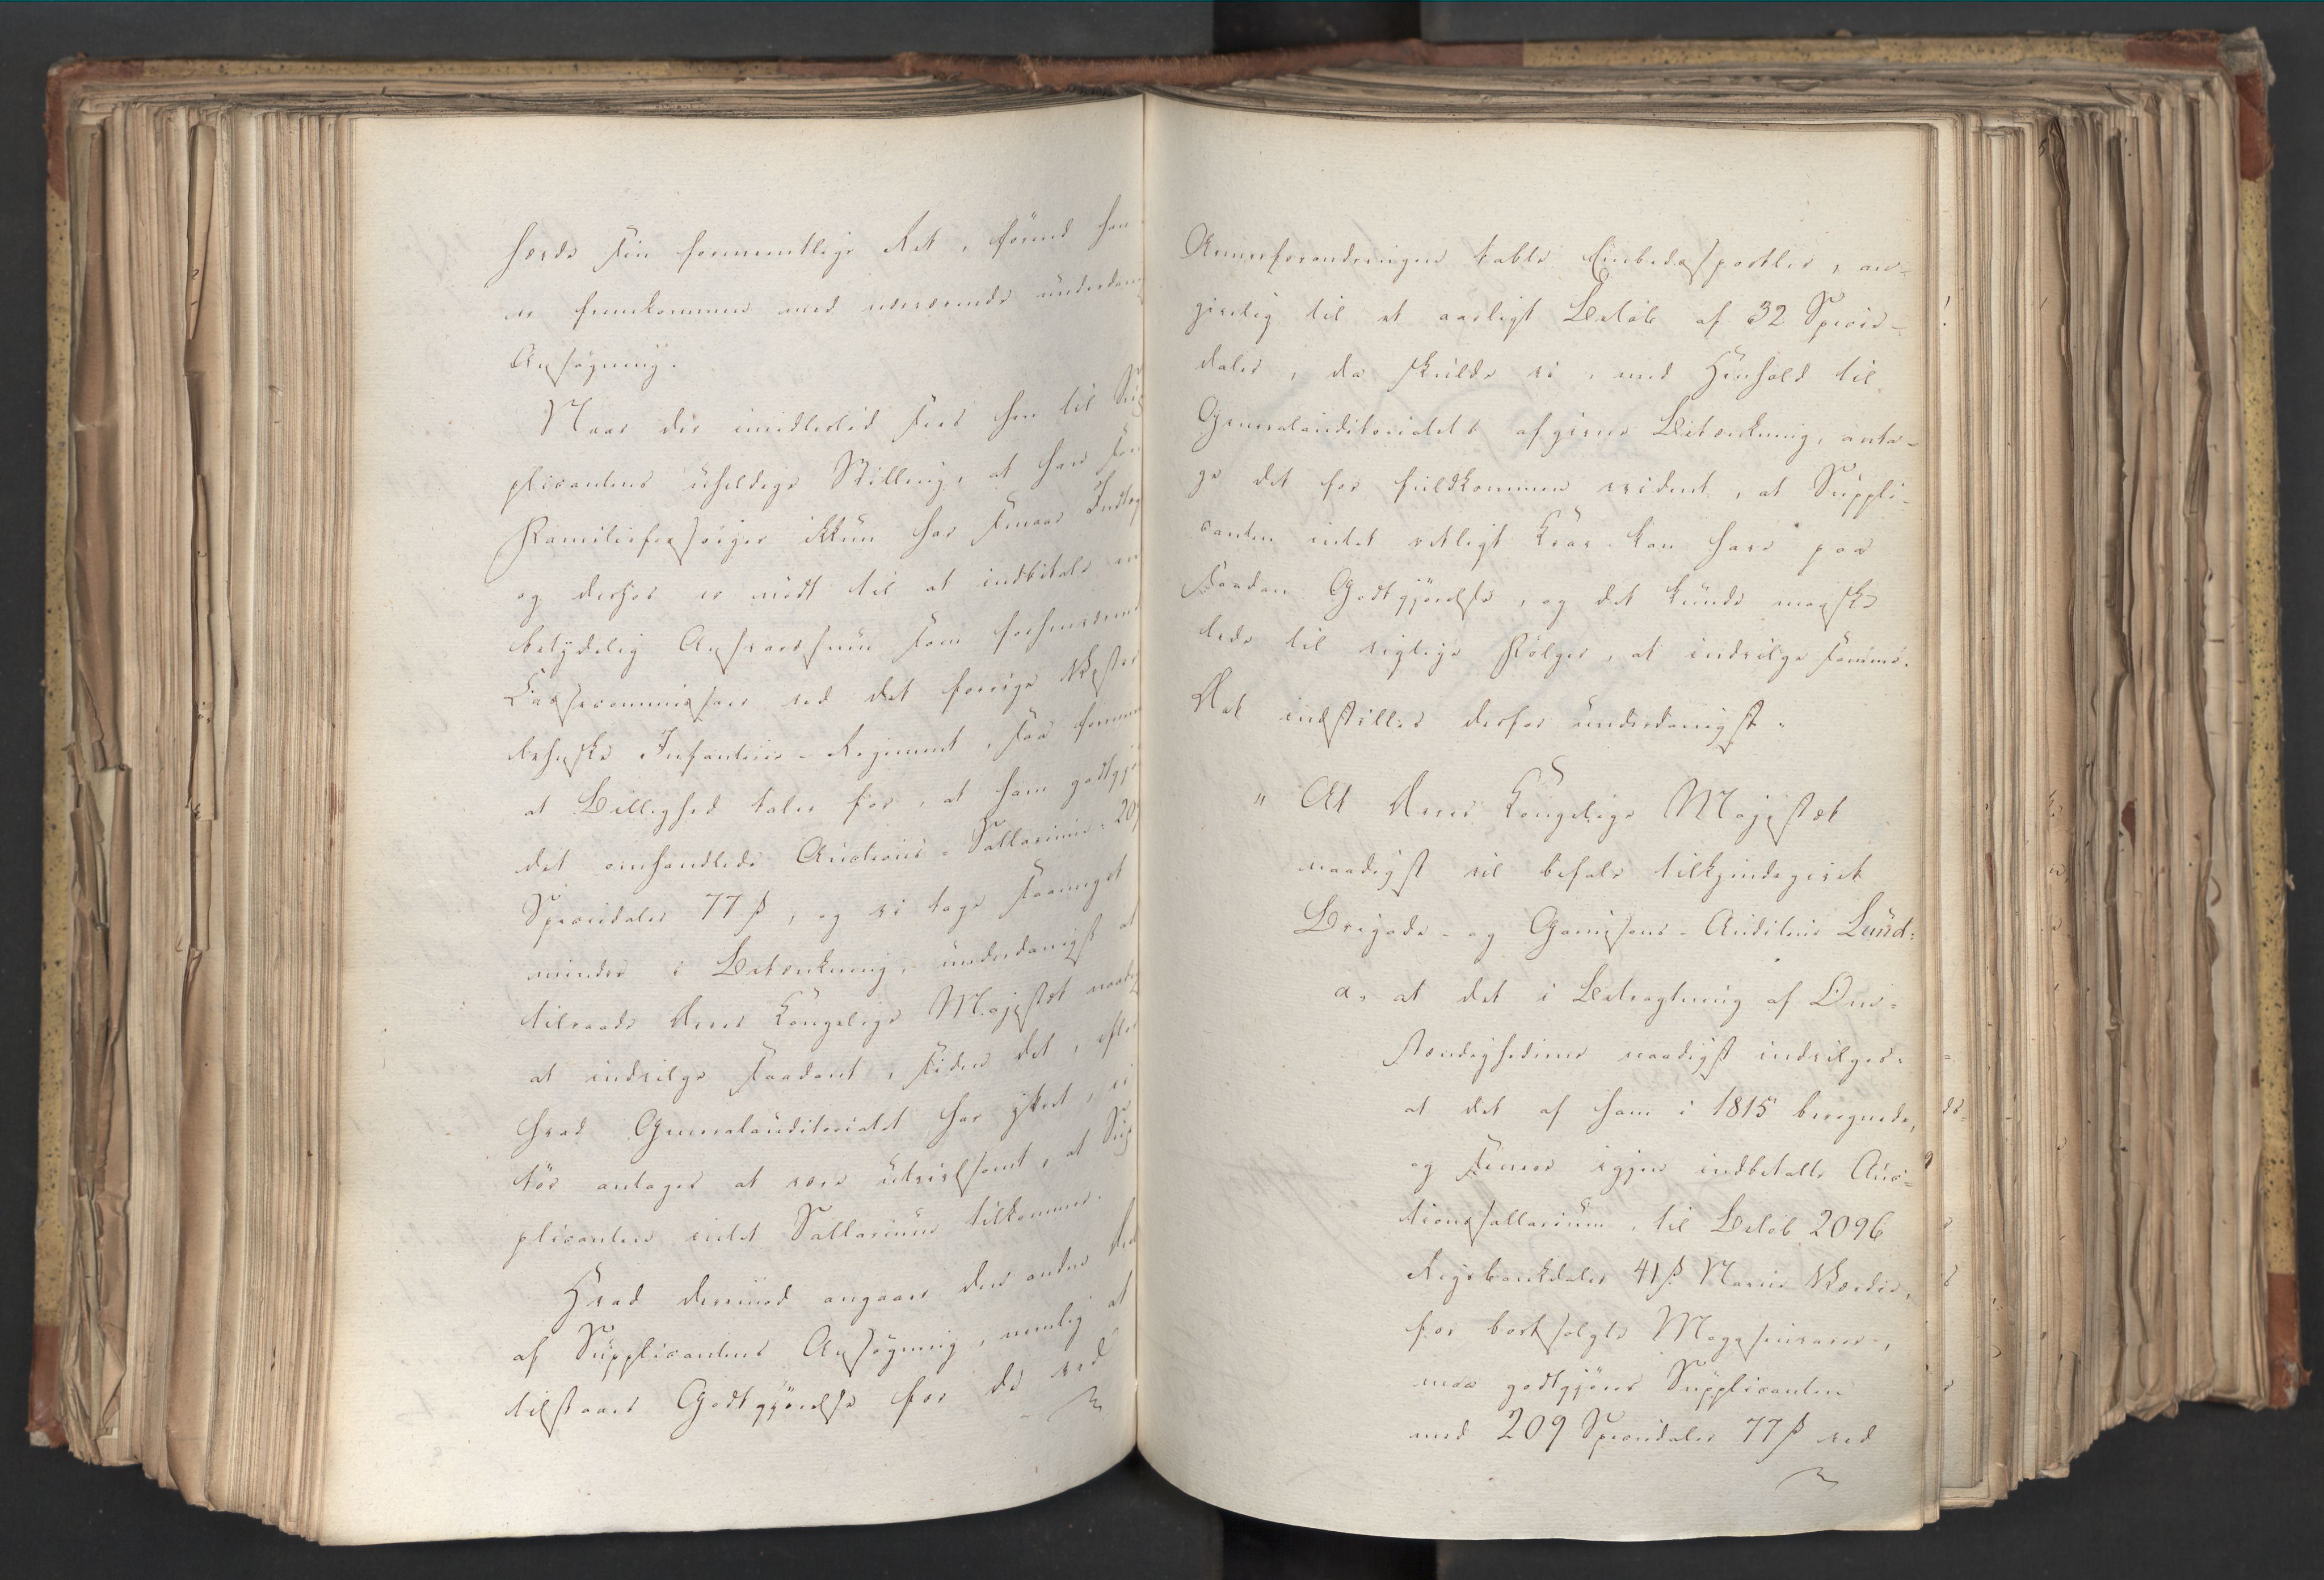 hævde sin formentlige Ret, førend han
er fremkommen med nærværende underdan
Ansøgning.
Naar der imidlertid sees hen til Sup
plicantens uheldige Stilling, at han som
Familieforsørger ikkun har smaae Indtæg
og derhos er nødt til at indbetale en
betydelig Ansvarssum som forhenværend
Casserer ved det forrige Vester
lehnske Infanterie-Regiment, saa
at Billighed taler for, at ham godtgjø
det omhandlede Auctions-Sallarium, 209
Speciedaler 77 ß, og vi tage saameget
mindre i Betænkning, underdanigst at
tilraade Deres Kongelige Majestæt naadig
at indvilge saadant, siden det, efter
hvad Generalauditoriatet har yttret, ei
tør antages at være utvivlsomt, at Sup
plicanten intet Sallarium tilkommer.
Hvad derimod angaaer den anden Deel
af Supplicantens Ansøgning, nemlig at
tilstaaes Godtgjørelse for de ved
Armeeforandringen tabte Embedssportler, an-
givelig til et aarligt Beløb af 32 Specie-
daler, da skulde vi, med Henhold til
Generalauditoriatets afgivne Betænkning, anta-
ge det for fuldkommen evident, at Suppli-
canten intet retligt Krav kan have paa
saadan Godtgjørelse, og det kunde maaske
lede til vigtige Følger, at indvilge samme.
Det indstilles derfor underdanigst:
" At Deres Kongelige Majestæt
naadigst vil befale tilkjendegivet
Brigade- og Garnisons-Auditeur Lund:
a, at det i Betragtning af Om-
stændighederne naadigst indvilges:
at det af ham i 1815 beregnede,
og senere igjen indbetalte Auc-
tionssallarium, til Beløb 2096
Rigsbankdaler 41 ß Navne Værdie,
for bortsolgte Magasinvarer,
maa godtgjøres Supplicanten
med 209 Speciedaler 77 ß ved